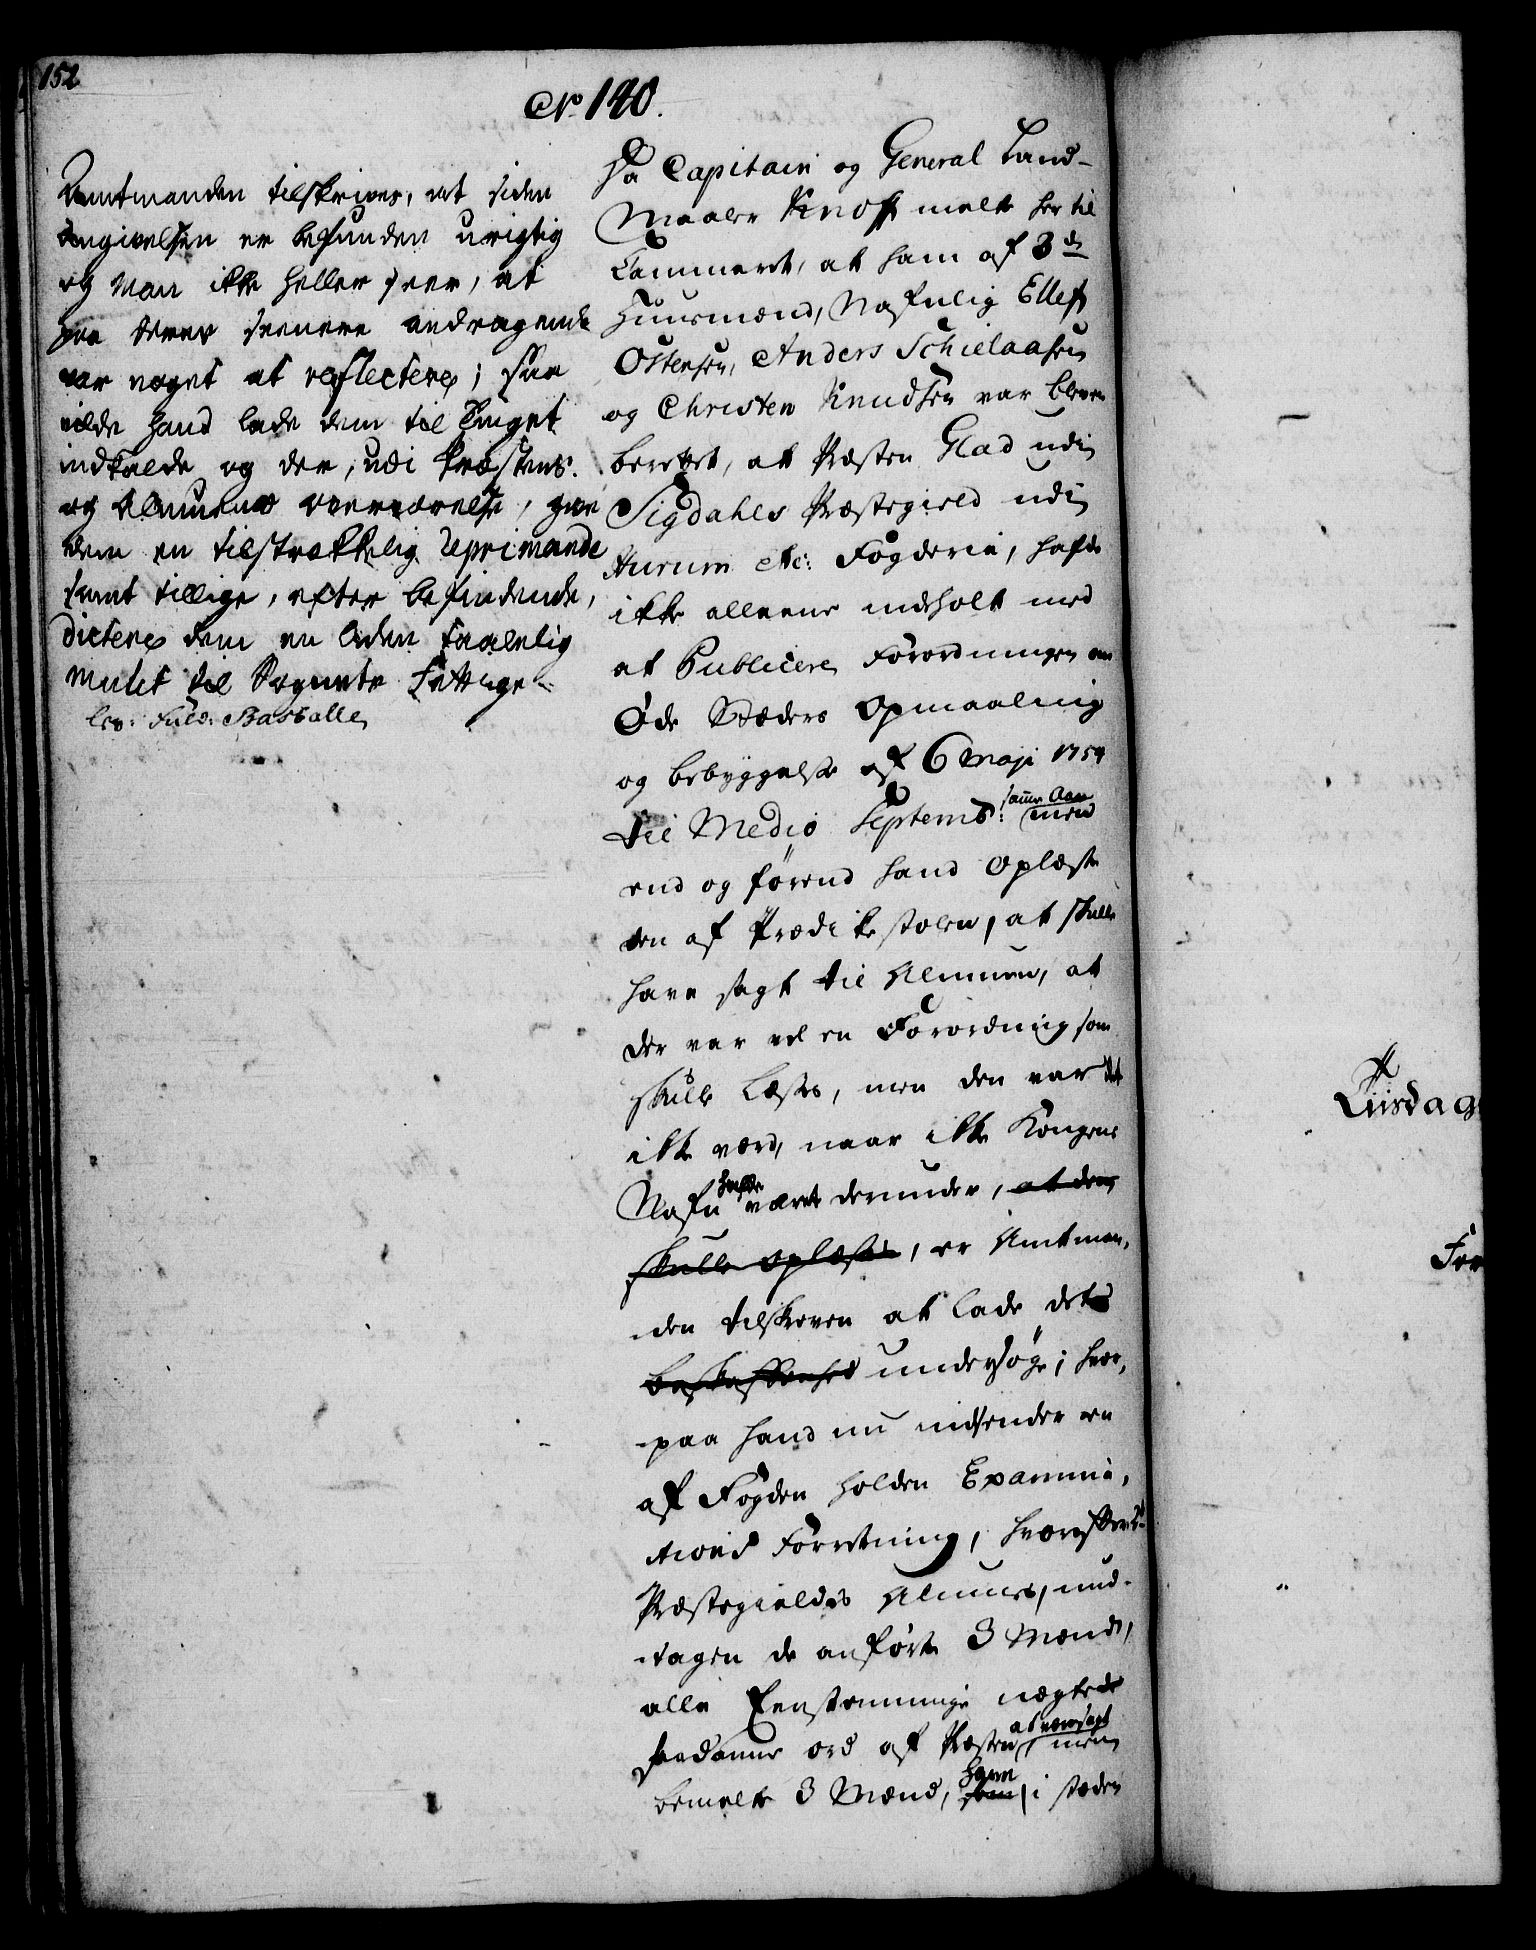 152
No 140.
Amtmanden tilskrives, at siden
Angivelsen er befunden urigtig
og Man ikke heller seer, at
paa deres seenere andragende
var noget at reflectere; saa
vilde hand lade dem til Tinget
indkalde og der, udi Præstens
og Almuens overværelse, give
dem en tilstrækkelig Reprimande
samt tillige, efter befindende,
dictere dem en liden taalelig
Mulct til Sognets Fattige
lev: Fuld: Barballe
Da Capitain og General Land-
Maaler Knoff melte her til
Cammeret, at ham af 3de
Huusmænd, Nafnlig Ellef
Ostensen, Anders Schielaasen
og Christen Knudsen var bleven
berettet, at Præsten Glad udi
Sigdahls Præstegield udi
Fogderie, hafde
ikke alleene indholt med
at Publicere Forordningen om
Øde Stæders Opmaaling
og bebyggelse af 6 Maji 1754
til Medio Septemb: samme Aar men
end og førend hand Oplæste
den af Prædikestolen, at skulle
have sagt til Almuen, at
der var vel en Forordning som
skulle læses, men den var det
ikke værd, naar ikke Kongens
Nafn hafde været derunder, at den
skulle oplæses, er Amtman-
den tilskreven at lade dets
beskaffenhed undersøge; hvor-
paa hand nu indsender en
af Fogden holden Examina-
tions Forretning, hvorefter
Præstegieldets Almue, und-
tagen de anførte 3 Mænd,
alle Eenstemmige nægtede
saadanne ord af Præsten at være sagt men
bemelte 3 Mænd, som i stæden
Liisdag
For